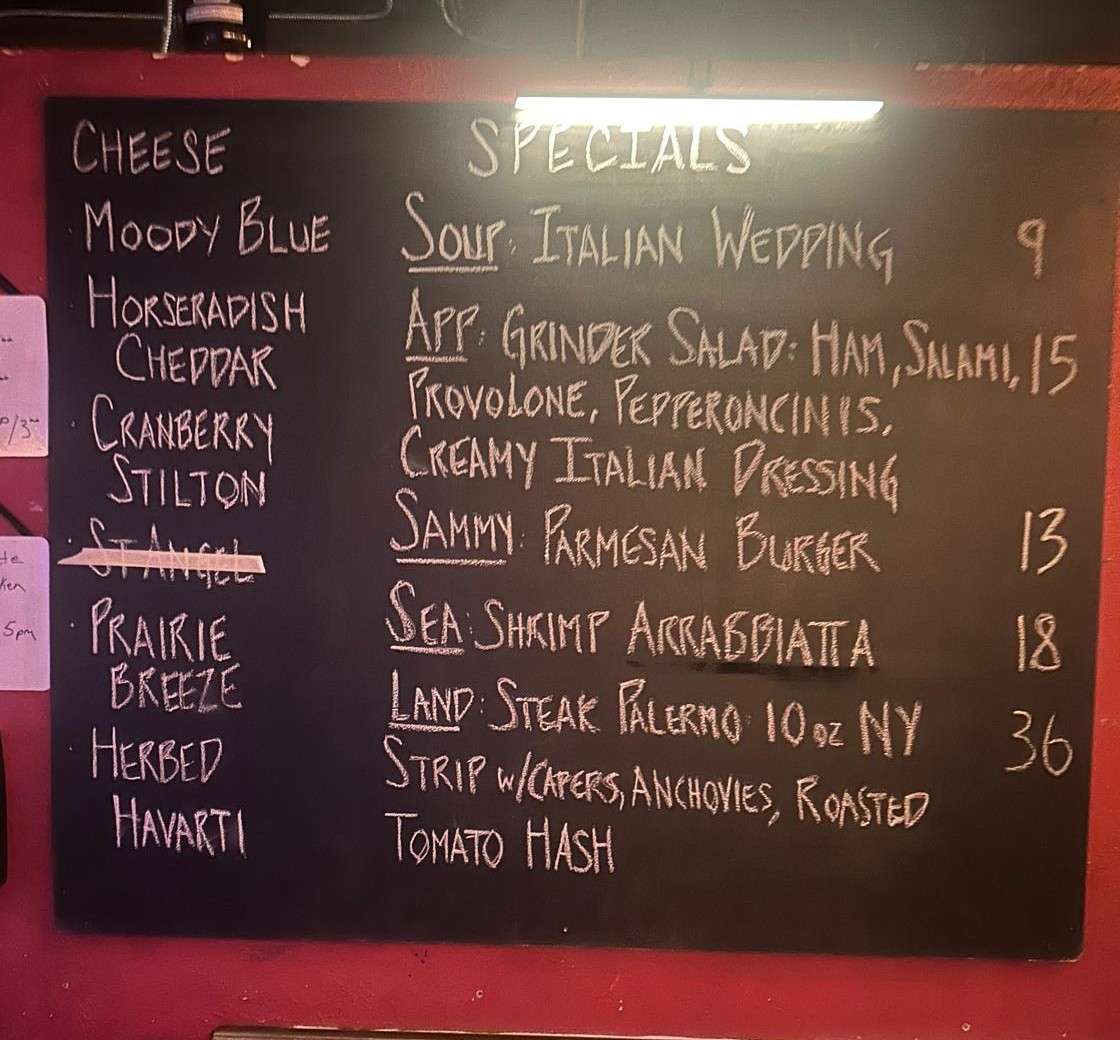 CHEESE
MOODY BLUE
HORSERADISH
CHEDDAR
CRANBERRY
STILTON
ST ANGEL
PRAIRIE
BREEZE
HERBED
HAVARTI
SPECIALS
SOUP: ITALIAN WEDDING 9
APP: GRINDER SALAD: HAM, SALAMI, 15
PROVOLONE, PEPPERONCINIS,
CREAMY ITALIAN DRESSING
SAMMY: PARMESAN BURGER 13
SEA: SHRIMP ARRABBIATTA 18
LAND: STEAK PALERMO: 10 OZ NY 36
STRIP W/CAPERS, ANCHOVIES, ROASTED
TOMATO HASH
5pm